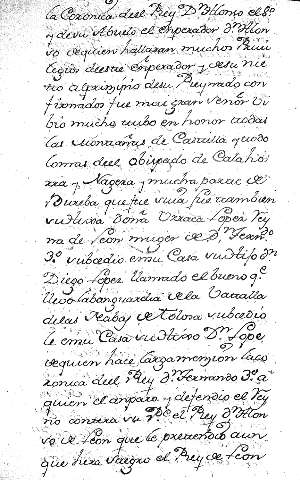 la Coronica deel Rey Dn Alonso el bo
y de su Abuelo el enperador Dn Alon
so de quien hallaran muchos Privi
legios deeste enperador y de su nie
to a prinzipio de su Reynado con
firmados fue muy gran señor Vi
bio mucho tubo en honor todas
las Montañas de Castilla y todo
lo mas del obispado de Calaho
rra y Nagera y mucha parte de
Bureba que fue suia fue tambien
su Hixa Doña Urraca Lopez Rey
na de Leon muger de Dn Fern.do
3o subcedio en su Casa su Hijo Dn
Diego Lopez llamado el bueno q.e
llevo labanguardia de la Vatalla
de las Nabas de tolosa subcedio
le en su Casa su Hixo Dn Lope
de quien hace larga menzion la Co
ronica del Rey Dn Fernando 3o a
quien el anparo y defendio el Rey
no contra su Pe el Rey Dn Alon
so de Leon que lo pretendio aun
que hera suegro el Rey de Leon